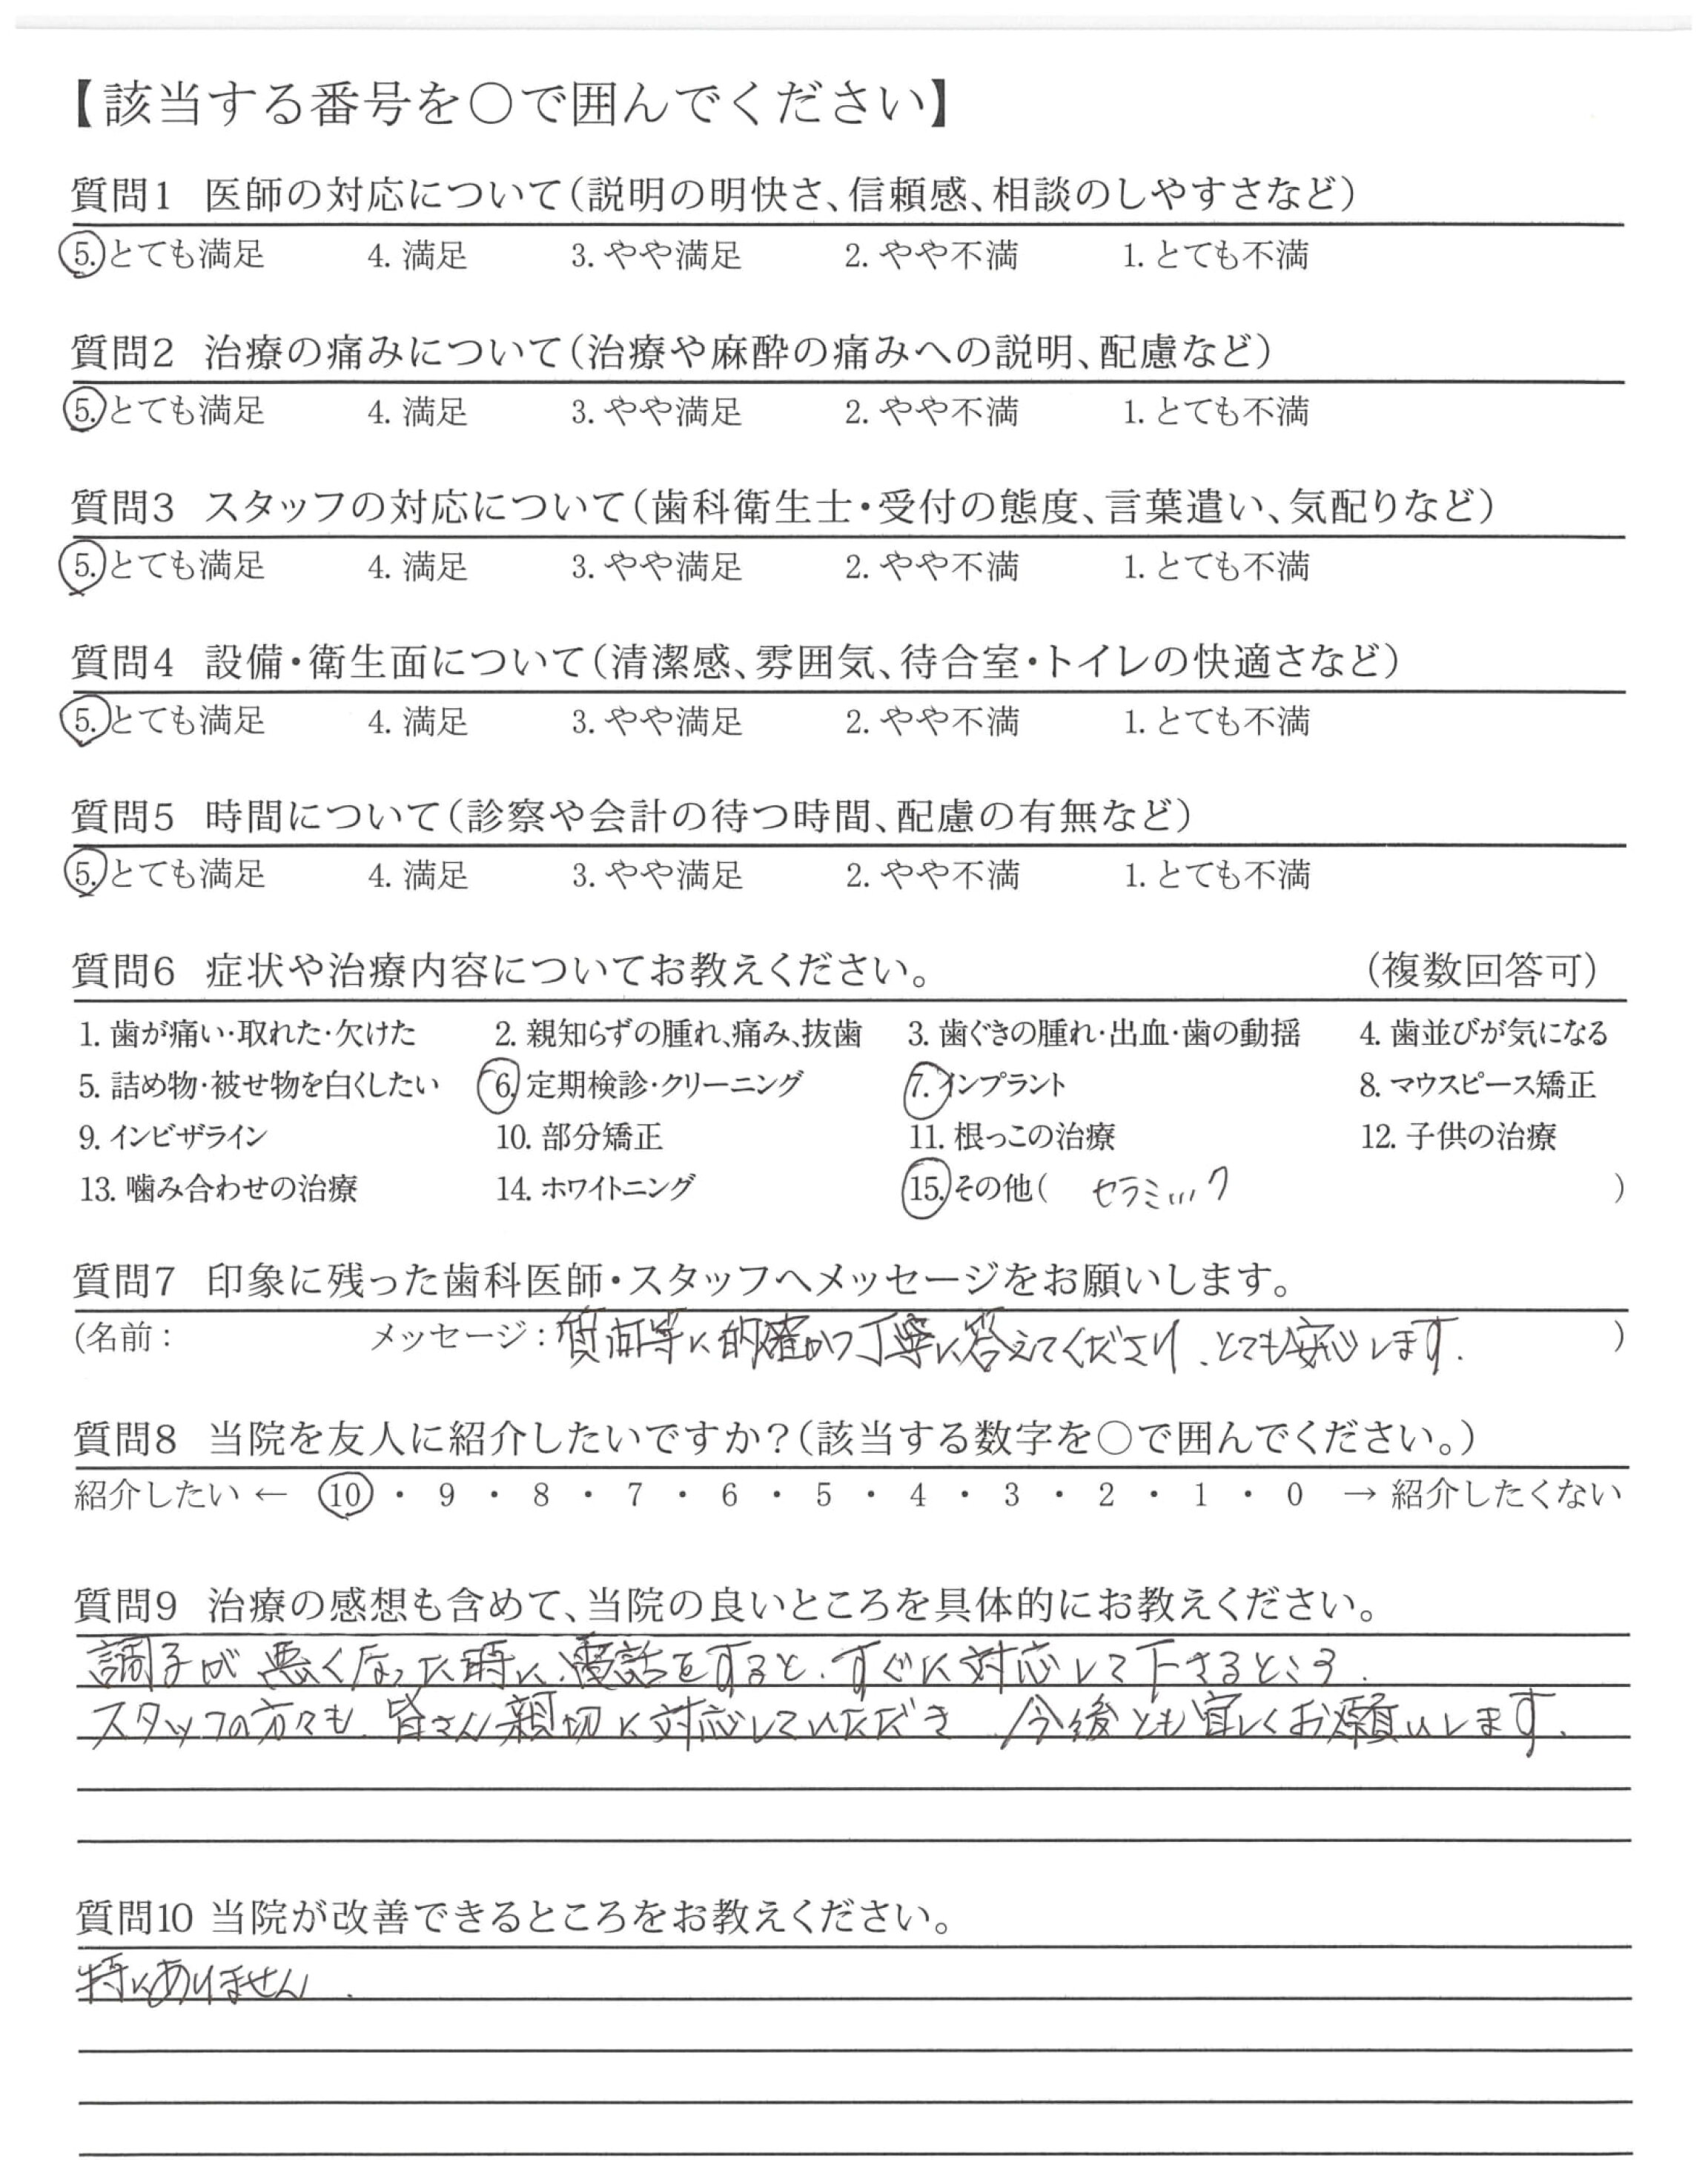 【該当する番号を○で囲んでください】
質問1 医師の対応について(説明の明快さ、信頼感、相談のしやすさなど)
5. とても満足 4. 満足 3. やや満足 2. やや不満 1. とても不満
質問2 治療の痛みについて(治療や麻酔の痛みへの説明、配慮など)
5. とても満足 4. 満足 3. やや満足 2. やや不満 1. とても不満
質問3 スタッフの対応について(歯科衛生士・受付の態度、言葉遣い、気配りなど)
5. とても満足 4. 満足 3. やや満足 2. やや不満 1. とても不満
質問4 設備・衛生面について(清潔感、雰囲気、待合室・トイレの快適さなど)
5. とても満足 4. 満足 3. やや満足 2. やや不満 1. とても不満
質問5 時間について(診察や会計の待つ時間、配慮の有無など)
5. とても満足 4. 満足 3. やや満足 2. やや不満 1. とても不満
質問6 症状や治療内容についてお教えください。 (複数回答可)
1. 歯が痛い・取れた・欠けた 2. 親知らずの腫れ、痛み、抜歯 3. 歯ぐきの腫れ・出血・歯の動揺 4. 歯並びが気になる
5. 詰め物・被せ物を白くしたい 6. 定期検診・クリーニング 7. インプラント 8. マウスピース矯正
9. インビザライン 10. 部分矯正 11. 根っこの治療 12. 子供の治療
13. 噛み合わせの治療 14. ホワイトニング 15. その他( セラミック )
質問7 印象に残った歯科医師・スタッフへメッセージをお願いします。
(名前: メッセージ: 質問等に的確かつ丁寧に答えてくださり、とても安心します. )
質問8 当院を友人に紹介したいですか?(該当する数字を○で囲んでください。)
紹介したい ← 10 ・ 9 ・ 8 ・ 7 ・ 6 ・ 5 ・ 4 ・ 3 ・ 2 ・ 1 ・ 0 → 紹介したくない
質問9 治療の感想も含めて、当院の良いところを具体的にお教えください。
調子が悪くなった時に、電話をすると、すぐに対応して下さるところ.
スタッフの方々も、皆さん親切に対応していただき、今後とも宜しくお願いします.
質問10 当院が改善できるところをお教えください。
特にありません.